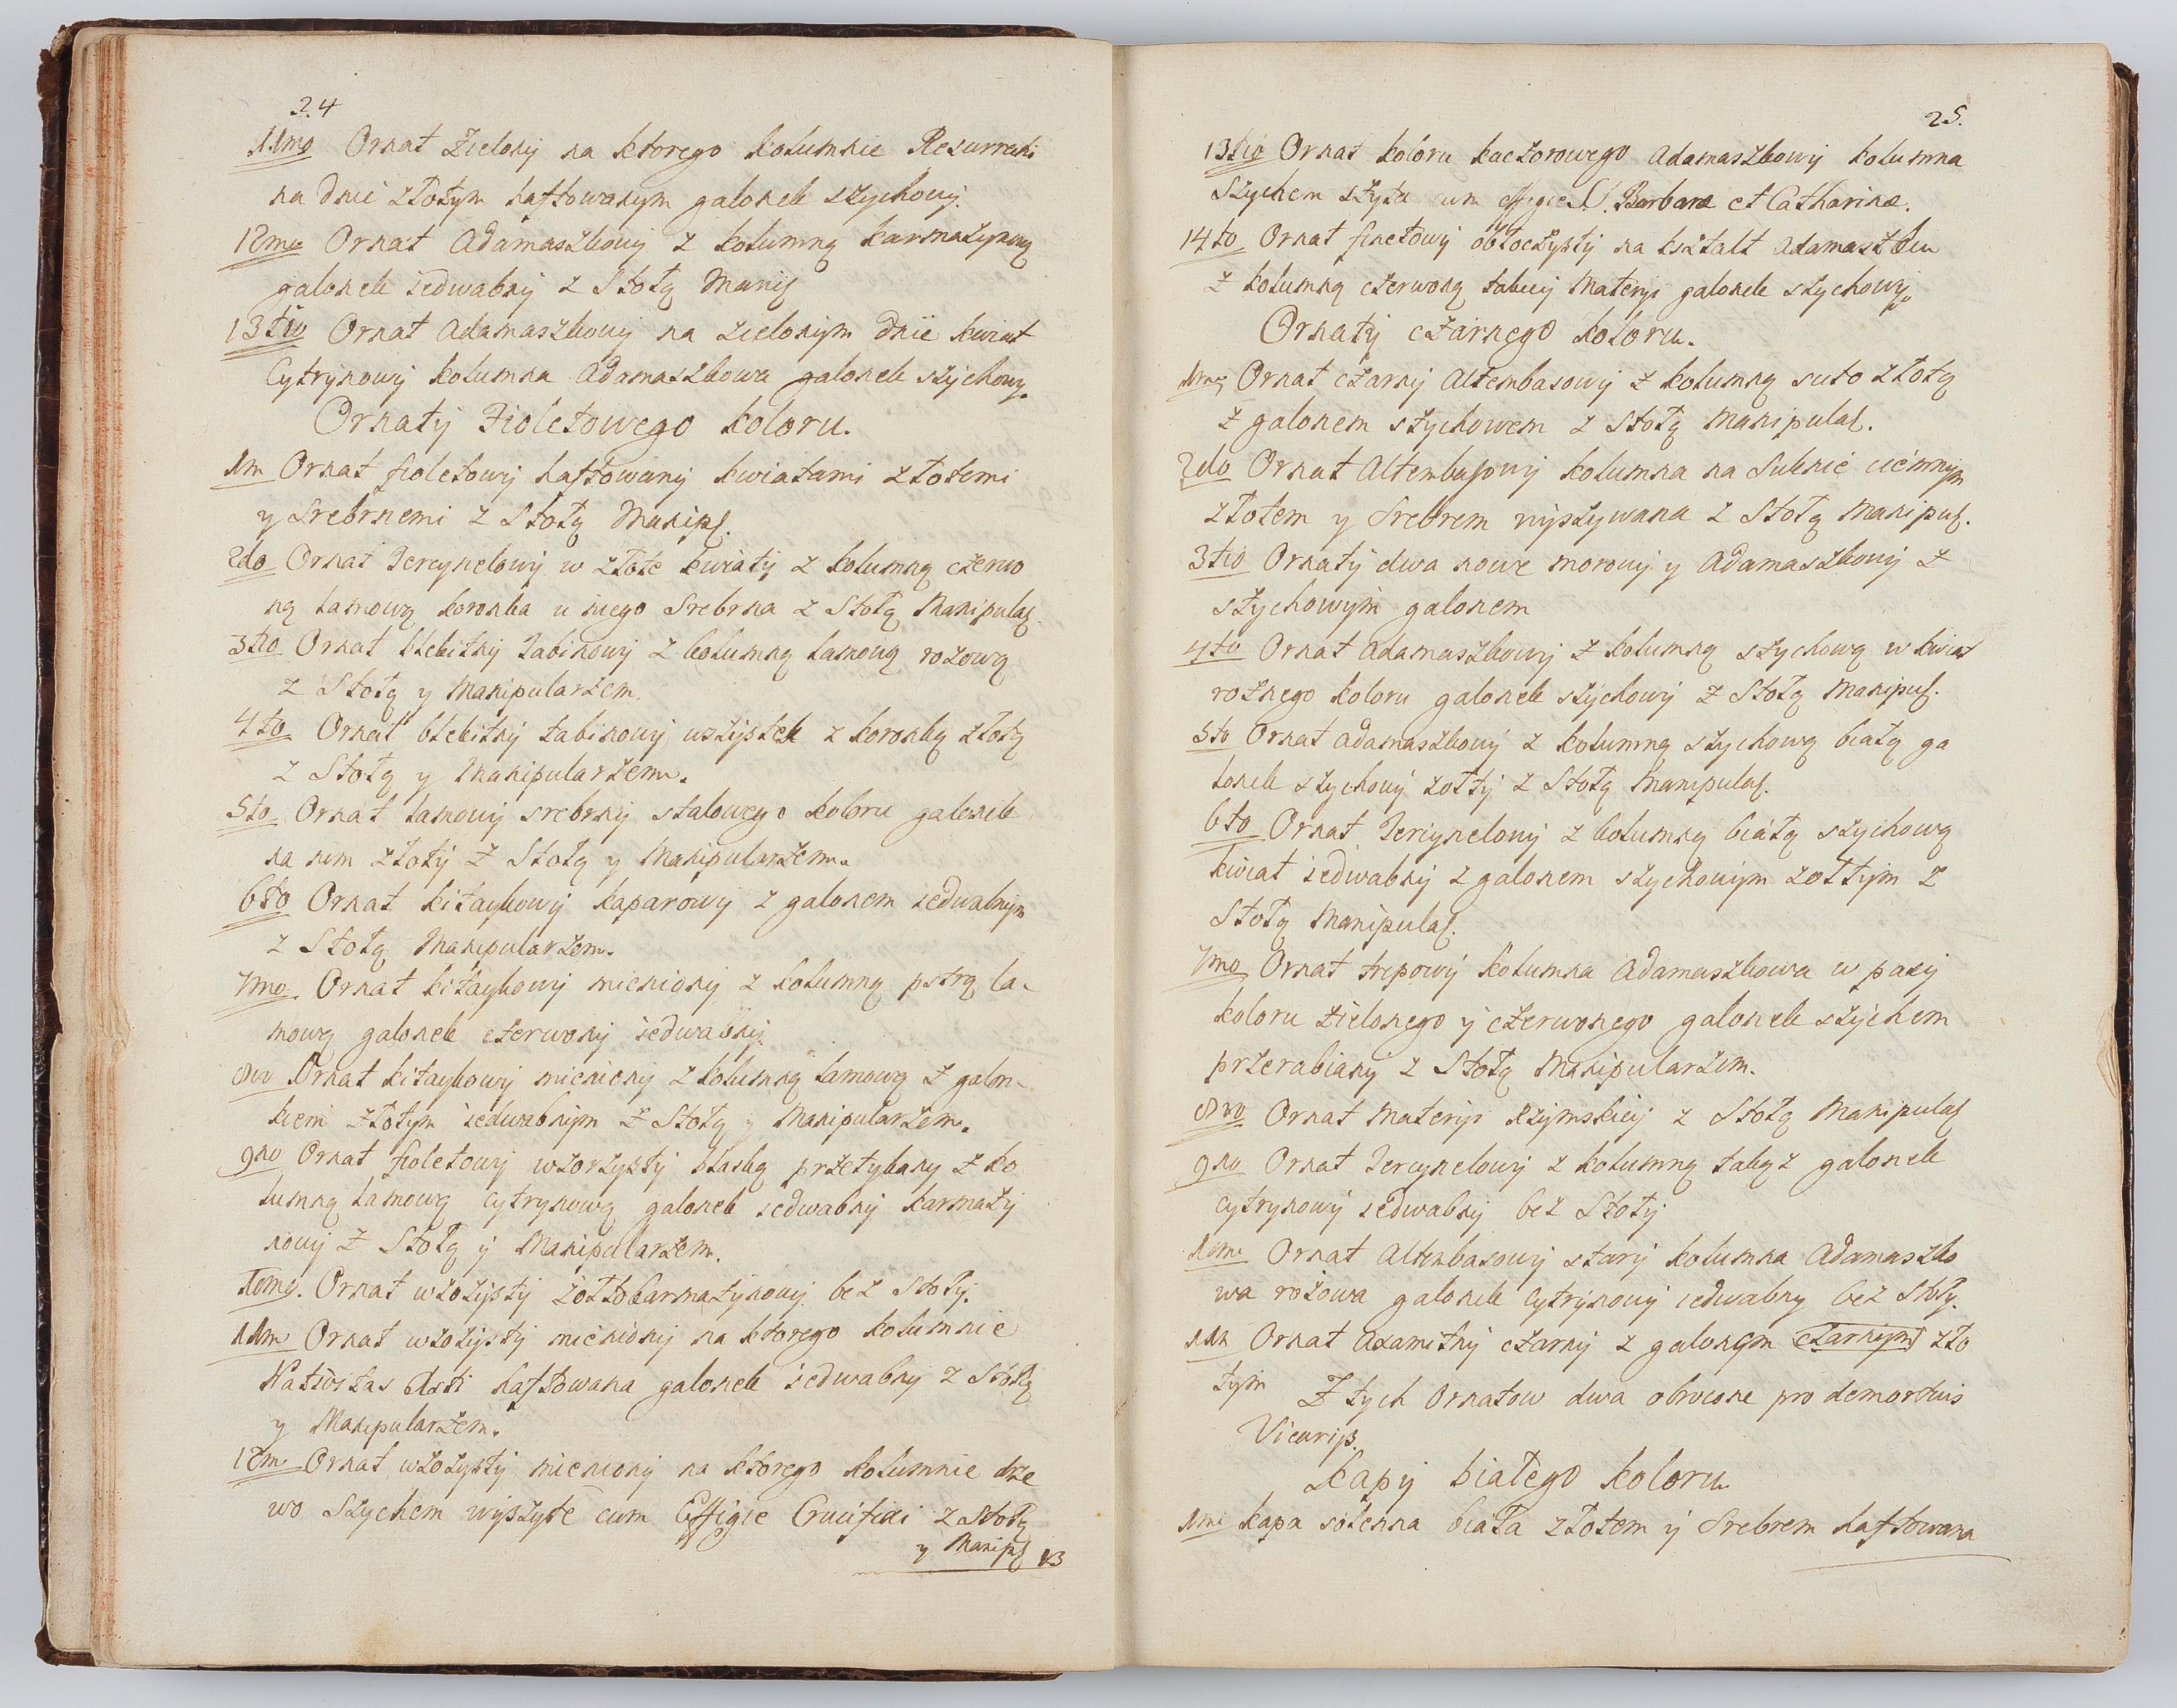 24
11mo Ornat Zielony na ktorego kolumnie Resurrecti
na dnie złotym haftowanym galonek szychowy.
12mo Ornat Adamaszkowy z kolumną karmazynową
galonek iedwabny z Stołą Manip
13tio Ornat Adamaszkowy na zielonym dnie kwiat
Cytrynowy kolumna Adamaszkowa galonek szychowy.
Ornaty Fioletowego koloru.
1m Ornat fioletowy haftowany kwiatami złotemi
y Srebrnemi z Stołą Manipl.
2do Ornat Tercynelowy w złote kwiaty z kolumną czerwo
ną lamową koronka u niego Srebrna z Stołą Manipular
3tio Ornat błękitny Tabinowy z kolumną lamową rożową
z Stołą y Manipularzem
4to Ornat błękitny tabinowy wszystek z koronką złotą
z Stołą y Manipularzem.
5to Ornat lamowy srebrny stalowego koloru galonek
na nim złoty z Stołą y Manipularzem.
6to Ornat kitaykowy kaparowy z galonem iedwabnym
z Stołą Manipularzem.
7mo Ornat kitaykowy mieniony z kolumną pstrą la-
mową galonek czerwony iedwabny.
8vo Ornat kitaykowy mieniony z kolumną lamową z galon-
kiem złotym iedwabnym z Stołą y Manipularzem.
9no Ornat fioletowy wzorzysty blaską przetykany z ko
lumną lamową cytrynową galonek iedwabny karmazy
nowy z Stołą y Manipularzem.
10mo. Ornat wzozysty żołtokarmazynowy bez Stoły.
11m Ornat wzozysty mieniony na ktorego kolumnie
Nativitas haftowana galonek iedwabny z Stołą
y Manipularzem.
12m Ornat wzozysty mieniony na ktorego kolumnie drze
wo Szychem wyszyte cum Effigie Crucifixi z Stołą
y Manipl 13
25.
13tio Ornat koloru kaczorowego Adamaszkowy kolumna
Szychem szyta cum effigie S. Barbaræ et Catharinæ.
14to Ornat fioletowy obłoczysty na kształt Adamaszku
z kolumną czerwoną takiey Materyi galonek szychowy.
Ornaty czarnego koloru.
1mo Ornat czarny Altembasowy z kolumną suto złotą
z galonem szychowem z Stołą Manipular.
2do Ornat Altembasowy kolumna na Suknie ciemnym
złotem y Srebrem wyszywana z Stołą Manipul.
3tio Ornaty dwa nowe morowy y Adamaszkowy z
szychowym galonem
4to Ornat Adamaszkowy z kolumną szychową w kwiat
rożnego koloru galonek szychowy z Stołą Manipul.
5to Ornat Adamaszkowy z kolumną szychową białą ga
lonek szychowy żołty z Stołą Manipular.
6to Ornat Terciynelowy z kolumną białą szychową
kwiat iedwabny z galonem szychowym żołtym z
Stołą Manipular.
7mo Ornat trypowy kolumna Adamaszkowa w pasy
koloru zielonego y czerwonego galonek szychem
przerabiany z Stołą Manipularzem.
8vo Ornat Materyi Rzymskiey z Stołą Manipular
9no Ornat Tercynelowy z kolumną takąż galonek
cytrynowy iedwabny bez Stoły
10mo Ornat Altembasowy stary kolumna Adamaszko
wa rożowa galonek cytrynowy iedwabny bez Stoły.
11m Ornat Axamitny czarny z galonem czarnym zło
tym Z tych Ornatow dwa obrocone pro demortuis
Vicariis.
Kapy białego koloru
1mo Kapa solenna biała złotem y Srebrem haftowana